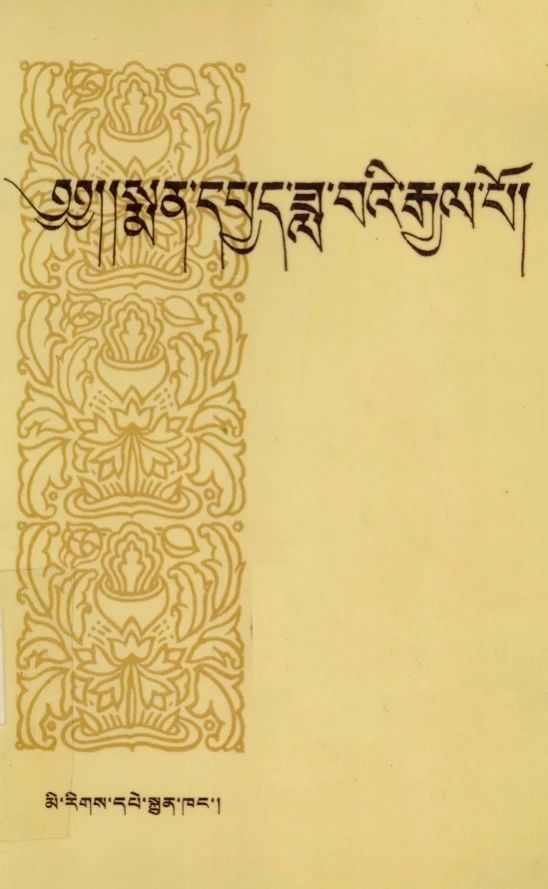 ༄༅།།སྨན་དཔྱད་ཟླ་བའི་རྒྱལ་པོ།
མི་རིགས་དཔེ་སྐྲུན་ཁང་།